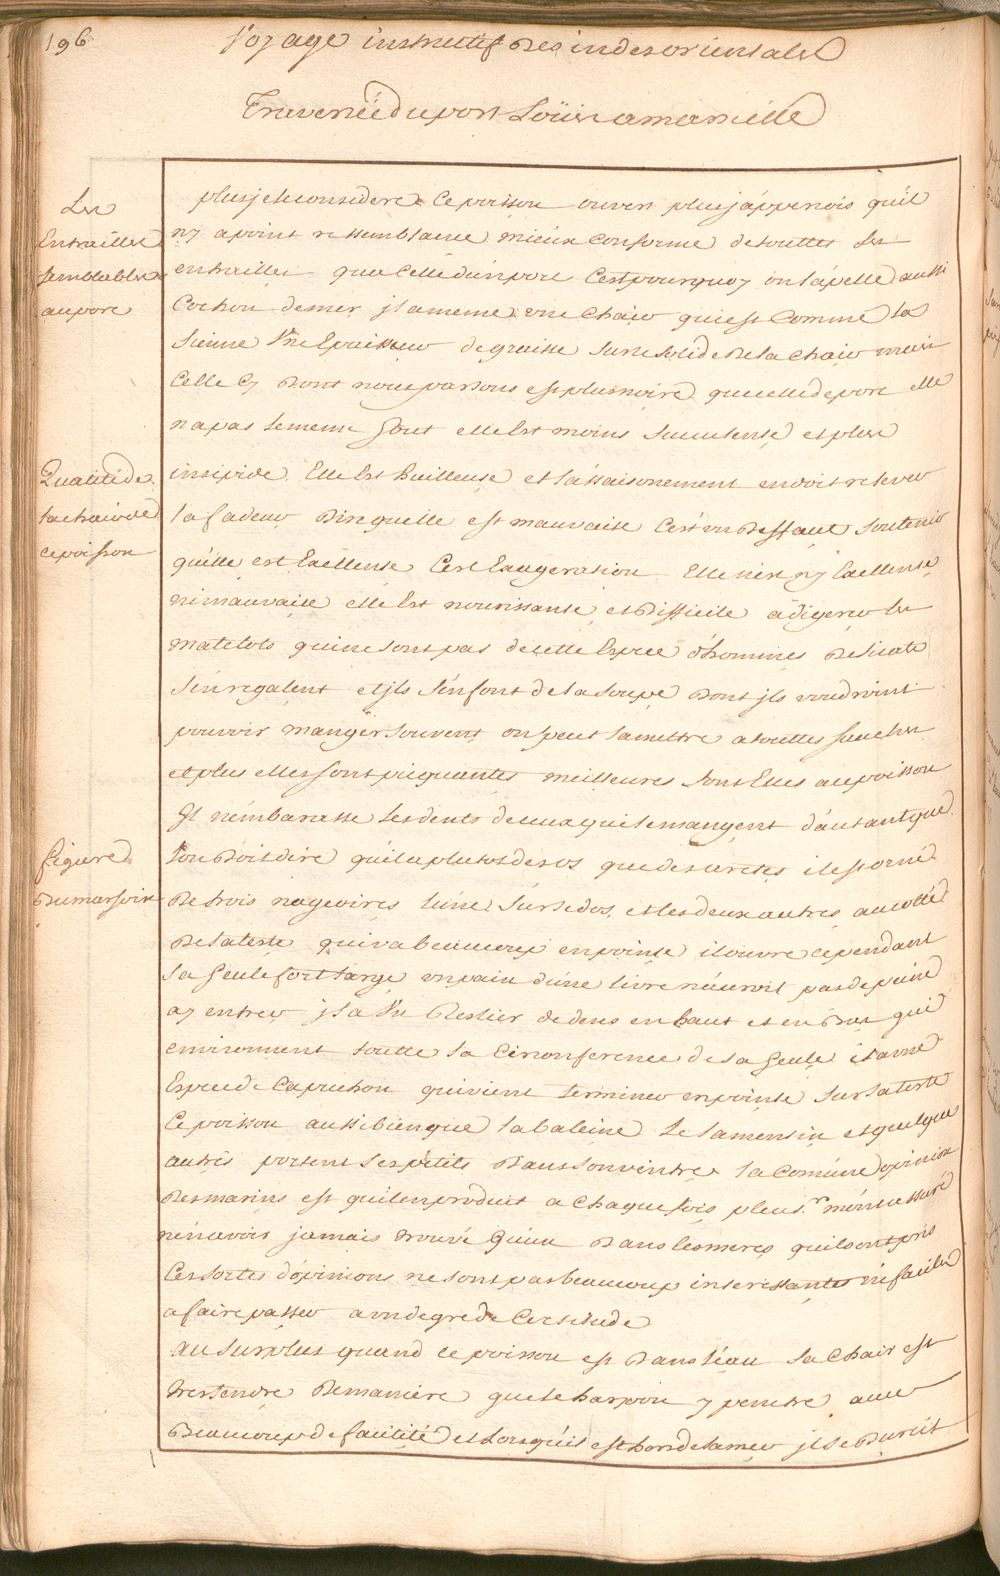 196
Voyage instructif des indes orientales
Traversée du port Loüis a marseille
Les
Entrailles
semblables
au porc
plus je le considere ce poisson ouvert plus j'appercois qu'il
n'y a point ressemblance mieux conforme de touttes les
entrailles que celle d'un porc C'est pourquoy on l'apelle aussi
Cochon de mer jl a meme une chair qui est Comme la
sienne Un Epaisseur de graisse sur le solide de la chair mais
Celle Cy dont nous parlons est plus noire que celle de porc elle
n'a pas le meme Gout elle Est moins succulente et plus
Qualité de
la chair de
ce poisson
insipide Elle Est huilleuse et l'assaisonement en doit relever
la fadeur Dire quelle est mauvaise C'est un Deffaut soutenir
qu'elle est Exellente C'est Exageration Elle n'est ny Exellente
ni mauvaise elle Est nourissante et Difficile a digerer les
matelots qui ne sont pas de cette Espece d'hommes Delicats
s'en regalent et jls s'en font de la soupe Dont jls voudroint
pouvoir manger souvent on peut la mettre a touttes sauches
et plus elles sont piquantes meilleures sont Elles au poisson
Il n'embarasse les dents de ceux qui le mangent d'autant que
figure
Du marsoin
l'on Doit dire qu'il a plutost des os que des arretes il est orné
De trois nageoires l'une sur le dos et les deux autres au costé
De la teste qui va beaucoup en pointe il ouvre cependant
sa Geule fort large un pain d'une livre n'auroit pas de peine
a y entrer jl a Un Ratlier de dens en haut et en Bas qui
environnent toutte la Circonference de sa Geule il a une
Espece de Capuchon qui vient terminer en pointe sur sa teste
Ce poisson aussi bien que la baleine le lamentin et quelque
autres portent les petits Dans son ventre la Comune opinion
Des marins est qu'il en produit a chaque fois plusr m'ont assuré
n'en avoir jamais trouvé qu'un Dans les meres qu'ils ont pris
Ces sortes d'opinions ne sont pas beaucoup interessantes ni faciles
a faire passer a un degre de Certitude
Au surplus quand ce poisson est Dans l'eau sa Chair est
tres tendre De maniere que le harpon y penetre avec
Beaucoup de facilité et lorsqu'il est hors de la mer jl se Durcit